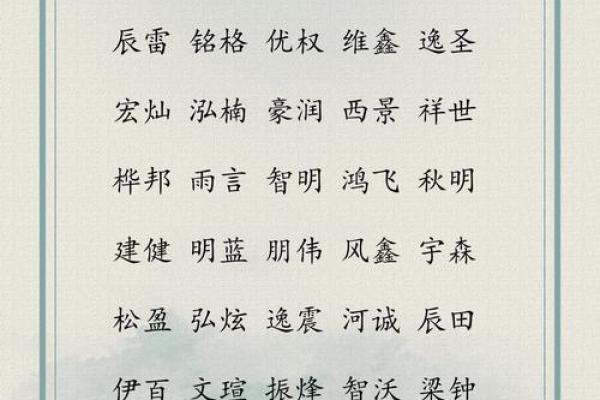 辰雷 铭格 优权 维鑫 逸圣
宏灿 泓楠 豪润 西景 祥世
桦邦 雨言 智明 鸿飞 秋明
建健 明蓝 朋伟 风鑫 宇森
松盈 弘炫 逸震 河诚 辰田
伊百 文瑄 振烽 智沃 梁钟